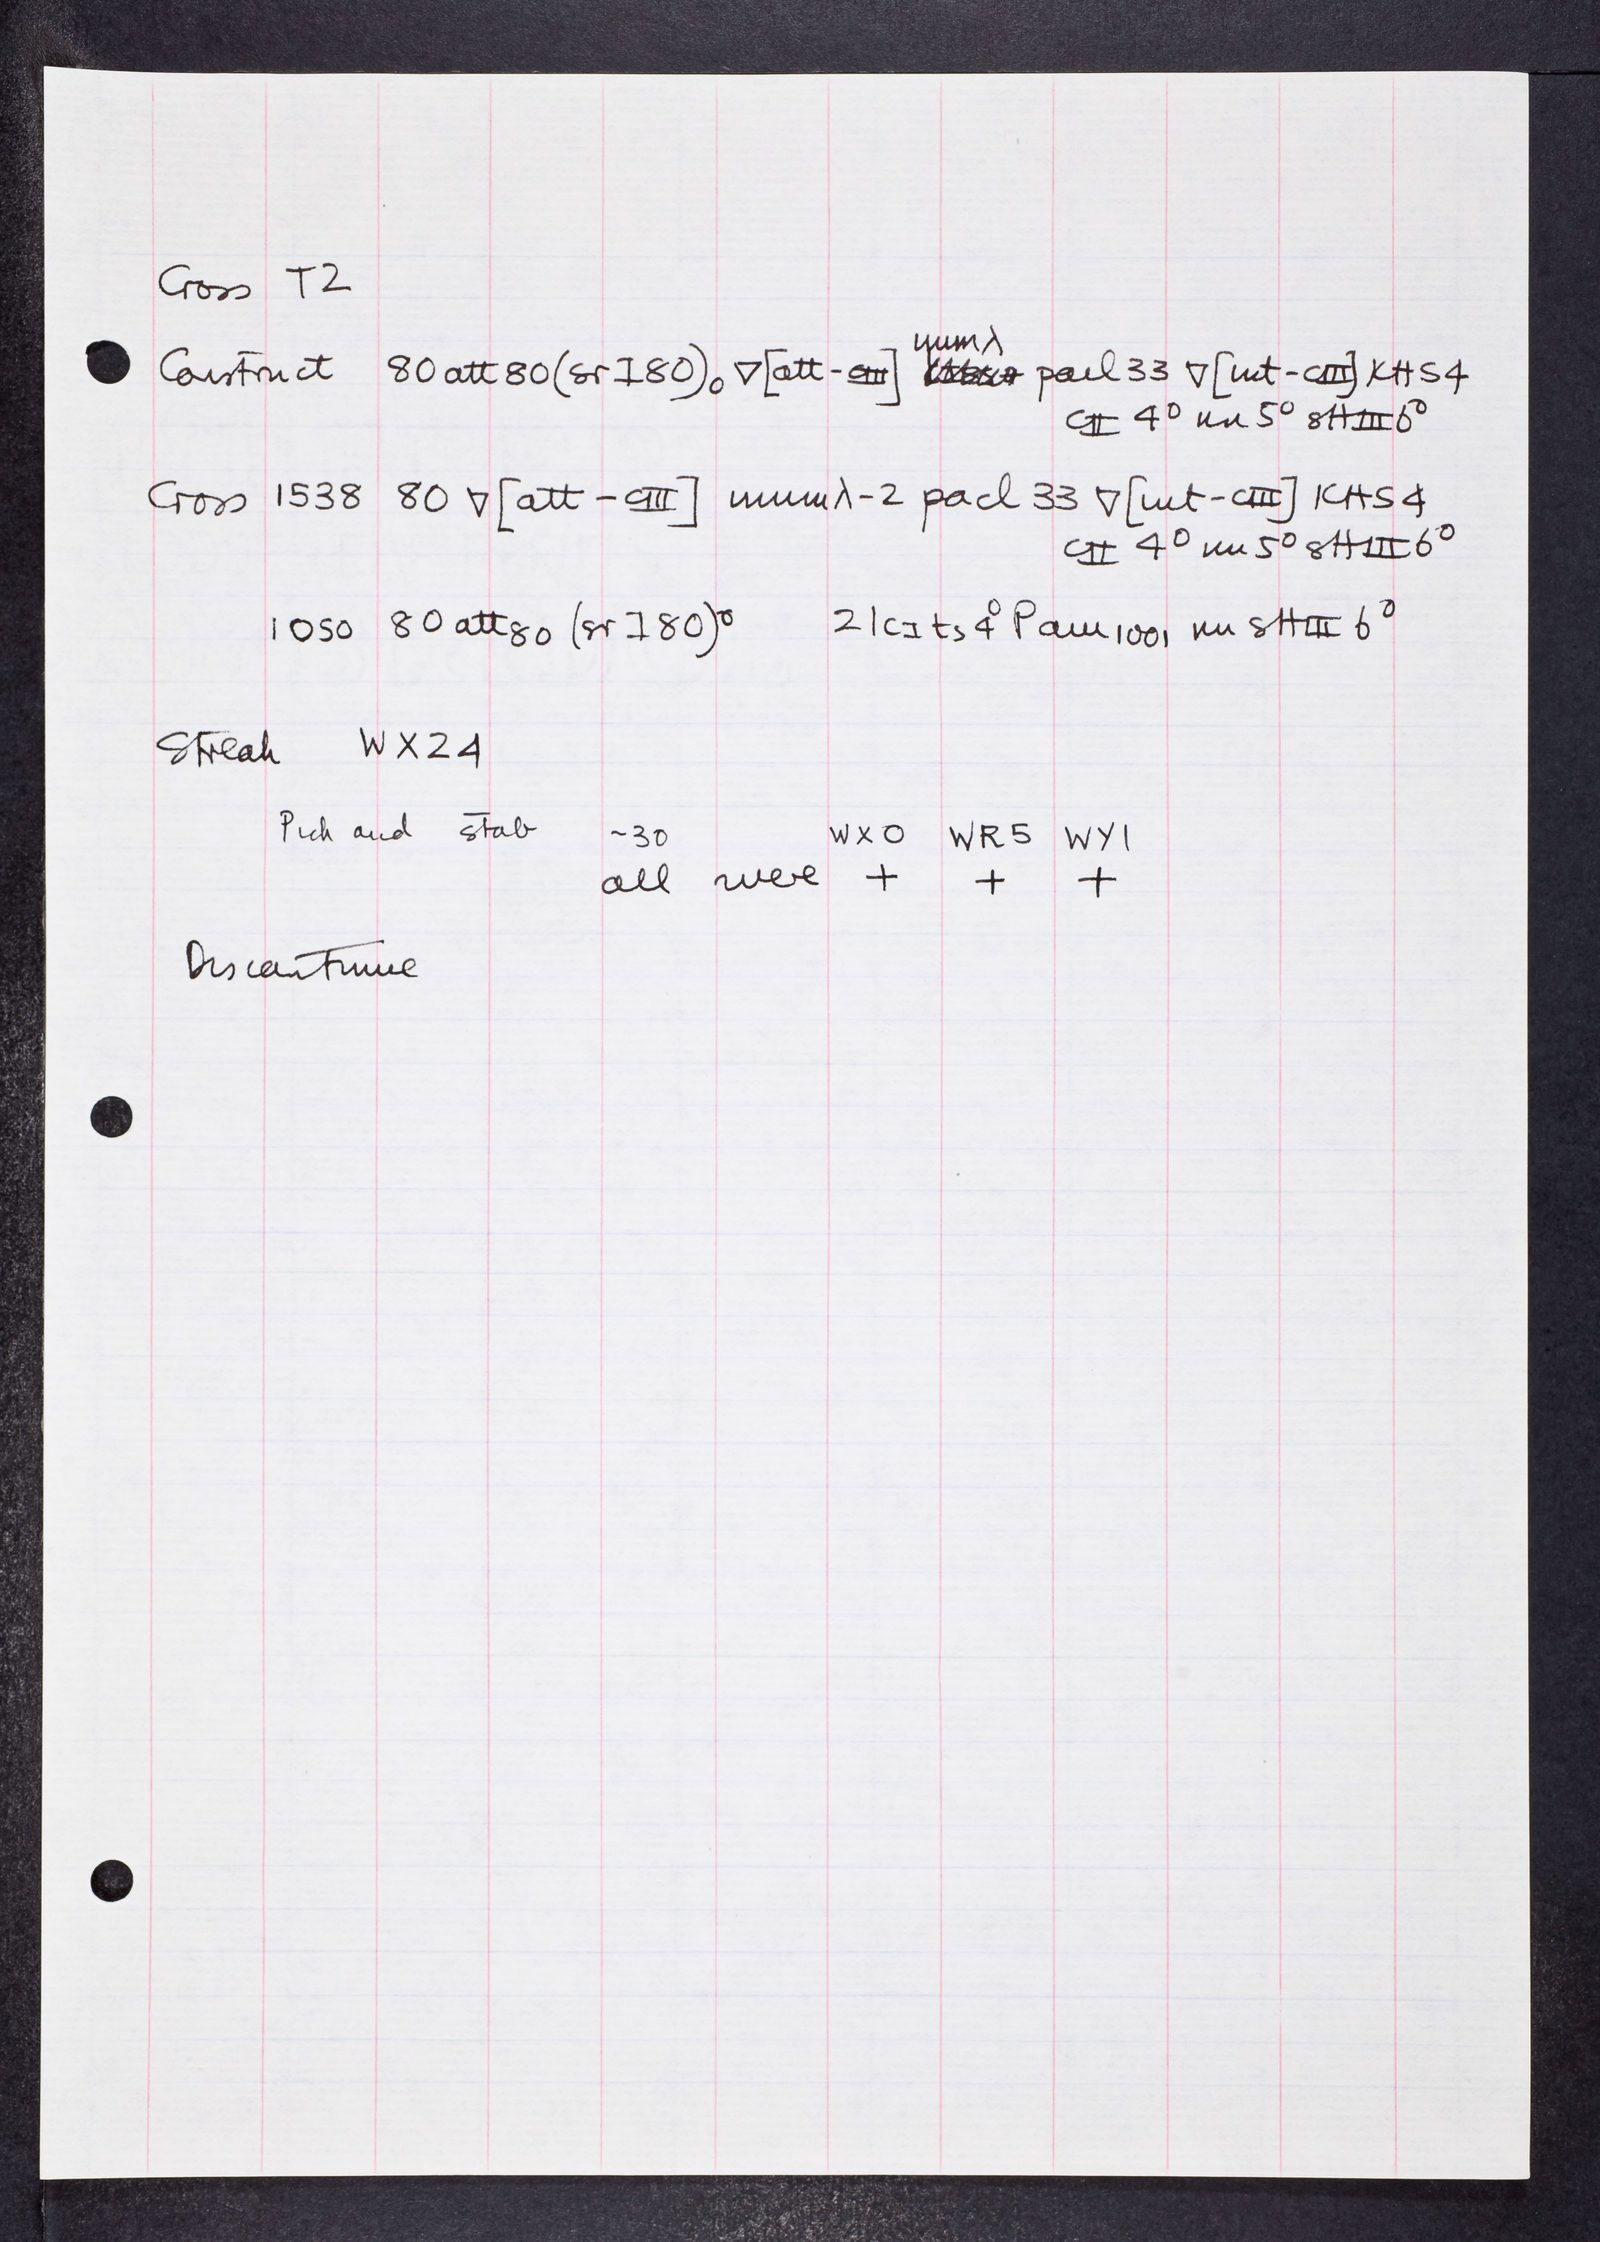 Cross T2
imm λ
Construct 80 att80 (sr I 80)₀ ∇[att-cIII] pacl 33 ∇[int-cIII] KH54
cII 4⁰ nn 5⁰ sHIII 6⁰
Cross 1538 80 ∇[att-cIII] imm λ-2 pacl 33 ∇[int-cIII] KH54
cII 4⁰ nn 5⁰ sHIII 6⁰
1050 80 att80 (sr I 80)⁰ 21 cI ts 4⁰ Pam 1001 nn sHIII 6⁰
Streak WX24
Pick and stab ~30 WX0 WR5 WY1
all were + + +
Discontinue